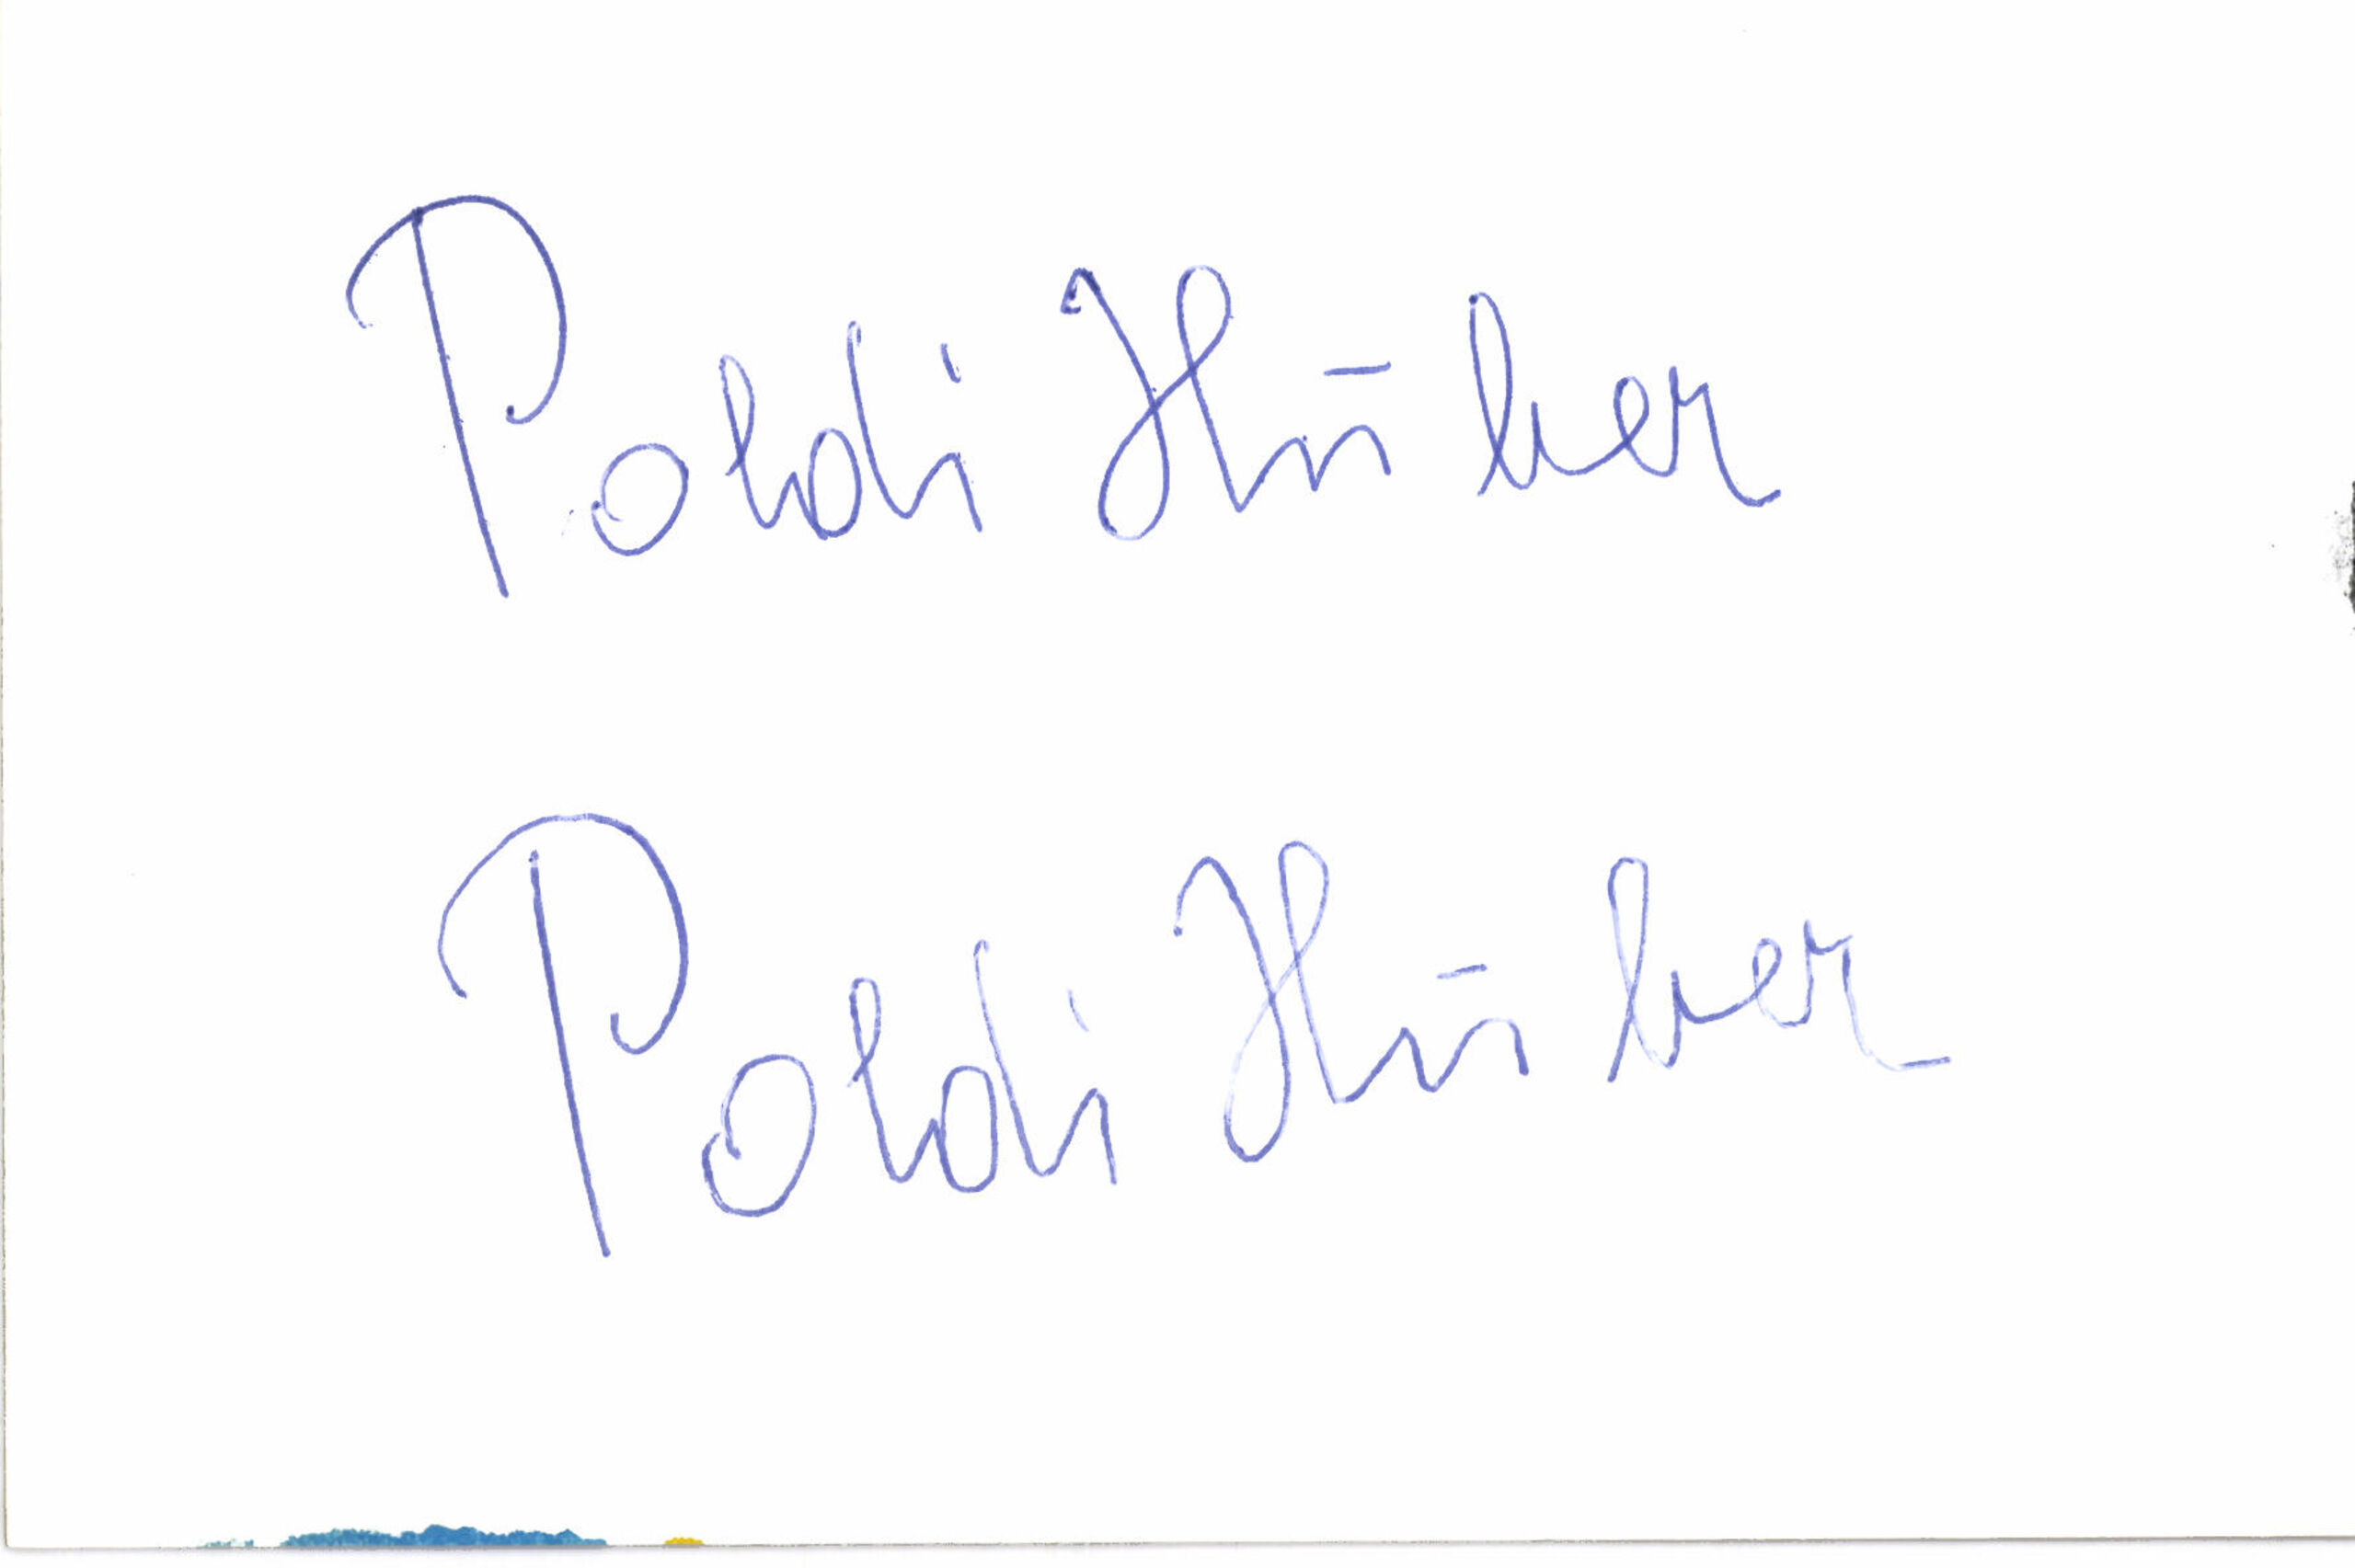 Poldi Huber
Poldi Huber